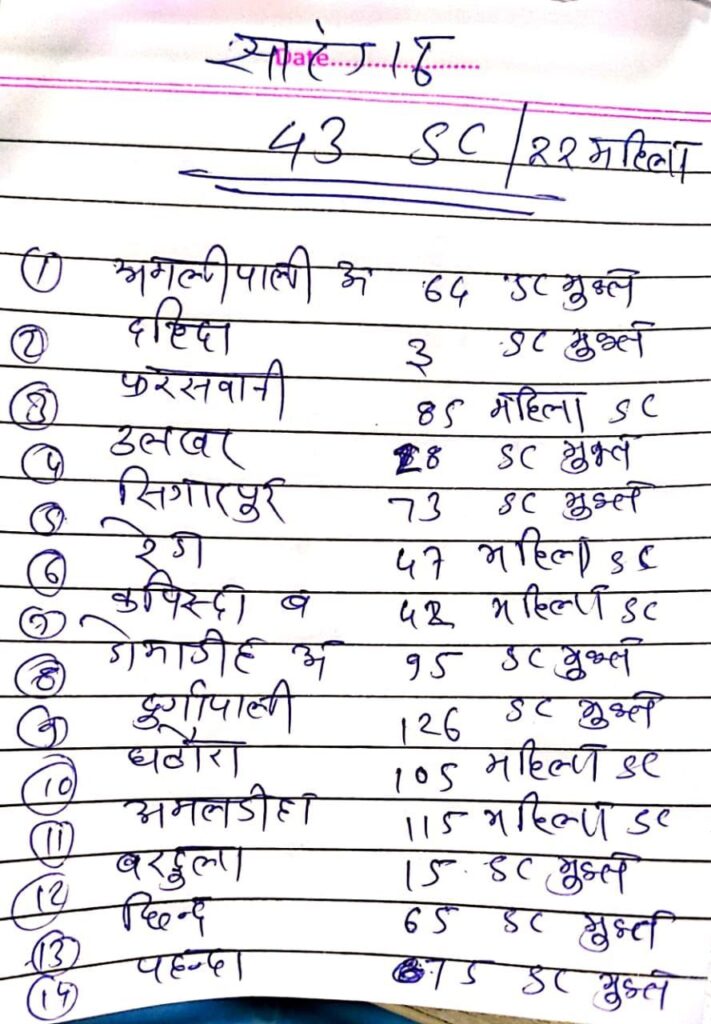 सारंगढ़
Date
43 SC / 22 महिला
① अमलीपाली अ 64 SC मुक्त
② दहिदा 3 SC मुक्त
③ फरसवानी 85 महिला SC
④ उलखर 28 SC मुक्त
⑤ सिंगारपुर 73 SC मुक्त
⑥ रेडा 47 महिला SC
⑦ कपिस्दा ब 42 महिला SC
⑧ डोमाडीह अ 95 SC मुक्त
⑨ दुर्गापाली 126 SC मुक्त
⑩ घठोरा 105 महिला SC
⑪ अमलडीहा 115 महिला SC
⑫ बरदुला 15 SC मुक्त
⑬ छिन्द 65 SC मुक्त
⑭ पहन्दा 75 SC मुक्त